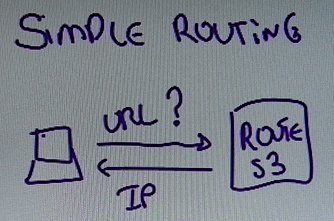 SIMPLE ROUTING
URL?
ROUTE
53
IP